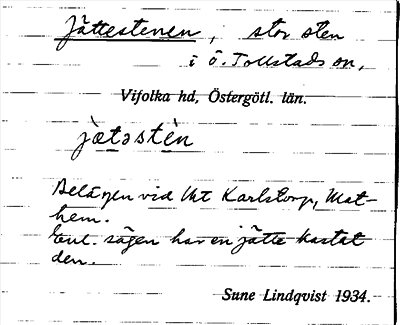 Jättestenen, stor sten
i Ö. Tollstads sn,
Vifolka hd, Östergötl. län.
jætəstén
Belägen vid Vkt Karlstorp, Mat-
hem.
Enl. sägen har en jätte kastat
den.
Sune Lindqvist 1934.